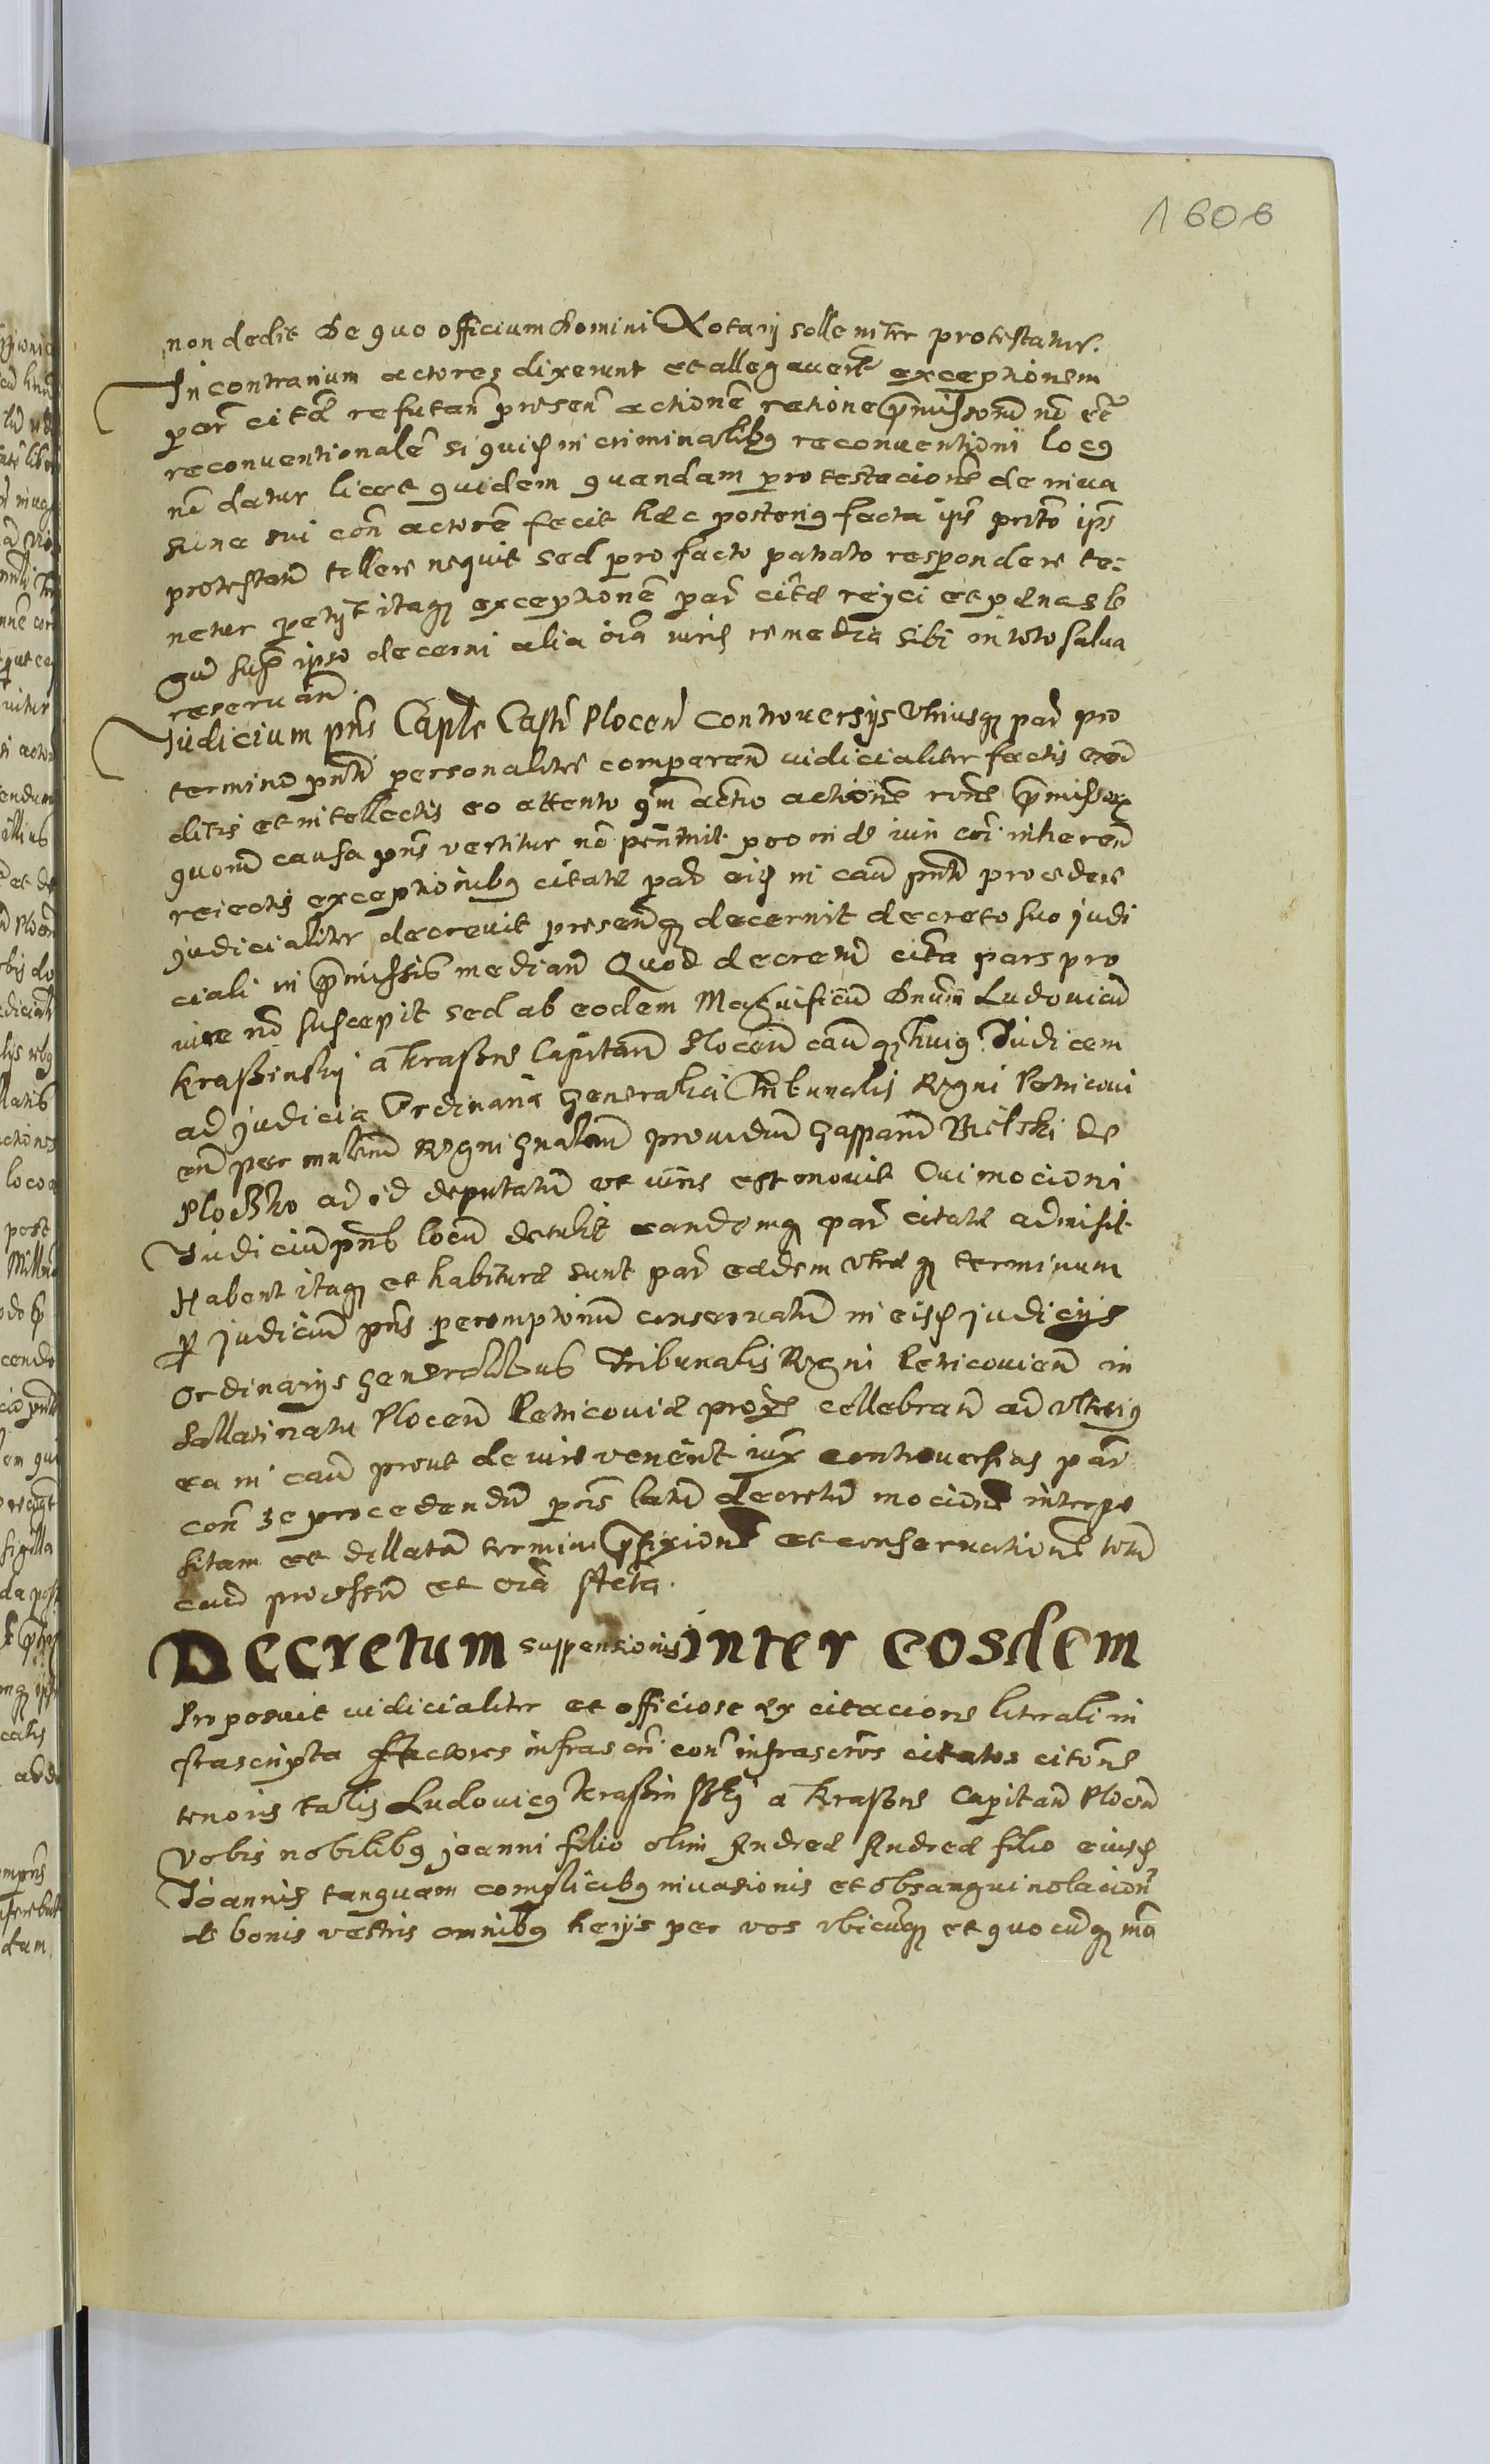 1606
non dedit De quo officium Domini Notarij solleniter protestatur.
In contrarium actores dixerunt et allegaverūt exceptionem
par̃ citatæ refutan̄ presen̄ actionē ratione p̄missorū nō ēe
reconventionalē si quid in criminalibꝫ reconventioni locꝰ
nō datur licet quidem quandam protestacionē de inva
sione sui con̄ actorē fecit hæc posteriꝰ facta ips̄ ips̄
protestan̄ tollere nequit sed pro facto patrato respondere te-
netur petijt itaqꝫ exceptionē par̄ citatæ reijci et pænas le
gū sup̄ ipso decerni alia oīa iuris remedia sibi in toto salva
reservan̄.
Judicium pn̄s Caple Castr̄ Plocen̄ Controversijs Utriusqꝫ par̄ pro
termino pn̄ti personaliter comparen̄ iudicialiter factis exau
ditis et intellectis eo attento qm̄ actio actione p̄missorꝫ
quorū causa pn̄s vertitur nō perimit proinde iuri cōi inheren̄
reiectis exceptionibꝫ citatæ par̄ eis in cau̅ pn̄ti procedere
judicialiter decrevit presenqꝫ decernit decreto suo judi
ciali in p̄missis median̄ Quod decretū cita pars pro
iure nō suscepit sed ab eodem Magnificū Dnum Ludovicū
Kraßinskij a Kraßne Capitan̄ Plocen̄ cauqꝫ huiꝰ Judicem
ad judicia Ordinaria Generalia Tribunalis Regni Petricovi
en̄ per ministrū Regni gnalem providū Gasparū Bielski de
Ploczko ad id deputatū ut iuris est movit Cui mocioni
Judiciū pn̄s locū detulit eandemqꝫ par̄ citatæ admisit
Habent itaqꝫ et habituræ sunt par̄ eædem utræqꝫ terminum
p̱ judiciū pn̄s peremptoriū conservatū in eisdē judicijs
Ordinarijs Generalibus Tribunalis Regni Petricovien̄ in
Pallatinatu Plocen̄ Petricoviæ proxe cellebran̄ ad ulteriꝰ
ea in cau̅ prout de iure venērt iuxᵃ controversias par̄
con̄ se procedendū p̱ris latū decretū mocione interpo
sitam et dellatā termini p̄fixione et conservatione totū
cau̅ processū et oīa acta.
Decretum suspensionis inter eosdem
Proposuit iudicialiter et officiose ex citacione literali in
frascripta Actores infrascrī con̄ infrascrōs citatos citōne
tenoris talis Ludovicꝰ Kraßinskij a Kraßne Capitan̄ Plocen̄
Vobis nobilibꝫ joanni filio olim Andreæ Andreæ filio eiusd
Joannis tanquam complicibꝫ invasionis et obsanguinolacion̄
de bonis vestris omnibꝫ herijs per vos ubicūqꝫ et quocūqꝫ mō